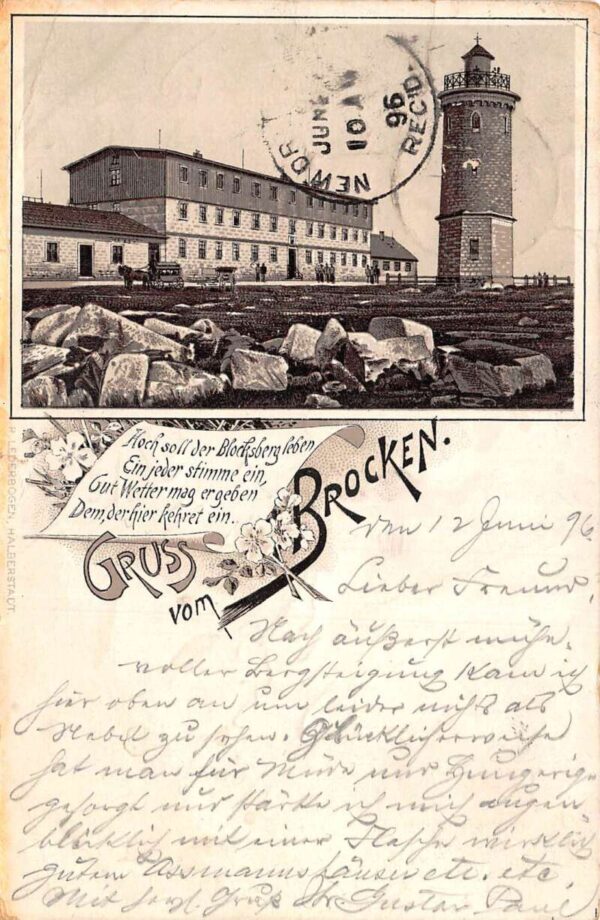 NEW OR
JUN
10 AM
96
REC'D.
Hoch soll der Blocksberg leben,
Ein jeder stimme ein,
Gut Wetter mag ergeben
Dem, der hier kehret ein.
GRUSS VOM BROCKEN.
LEDERBOGEN, HALBERSTADT.
den 12 Juni 96
Lieber Freund,
Nach äußerst mühe-
voller Bergsteigung kam ich
hier oben an um leider nichts als
Nebel zu sehen. Glücklicherweise
hat man für Müde und Hungerige
gesorgt und stärke ich mich augen
blicklich mit einer Flasche wirklich
gutem Assmannshäuser etc. etc.
Mit herzl. Gruß Ihr Gustav